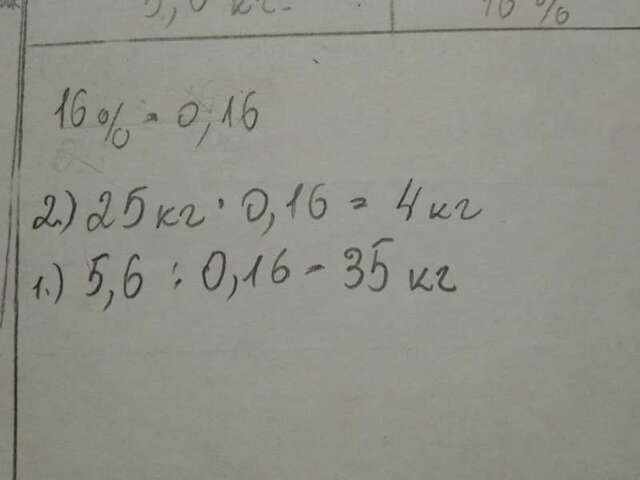 5,6 кг. 16 %
16 % = 0,16
2.) 25 кг · 0,16 = 4 кг
1.) 5,6 : 0,16 = 35 кг